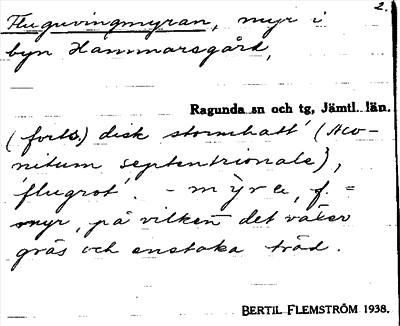 2.
Fluguvingmyran, myr i
byn Hammarsgård,
Ragunda sn och tg, Jämtl. län.
(forts.) disk stormhatt' (Aco-
nitum septentrionale),
'flugrot'. - mỳra, f. =
myr, på vilken det växer
gräs och enstaka träd.
BERTIL FLEMSTRÖM 1938.